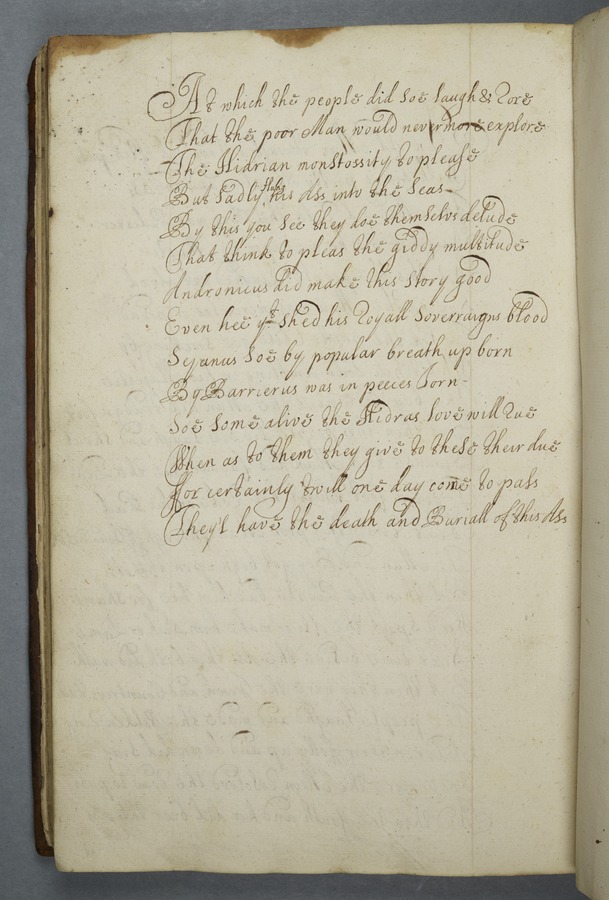 At which the people did soe laugh & rore
That the poor Man would nevermore explore
The Hidrian monstossity to please
But sadly flings his Ass into the Seas
By this you see they doe themselvs delude
That think to pleas the giddy multitude
Andronicus did make this story good
Even hee yt shed his Royall Soverraigns blood
Sejanus soe by popular breath up born
By Barrierius was in peeces torn
Soe some alive the Hidras love will rue
When as to them they give to these their due
For certainly twill one day come to pass
They'l have the death and Buriall of this Ass